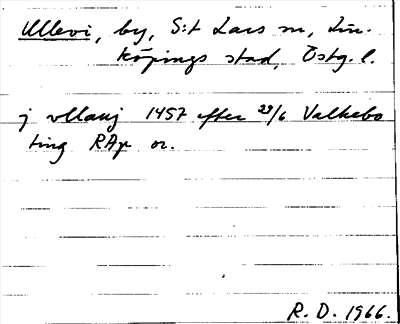 Ullevi, by, S:t Lars sn, Lin-
köpings stad, Östg. l.
j vllavj 1457 efter 29/6 Valkebo
ting RAp or.
R. D. 1966.